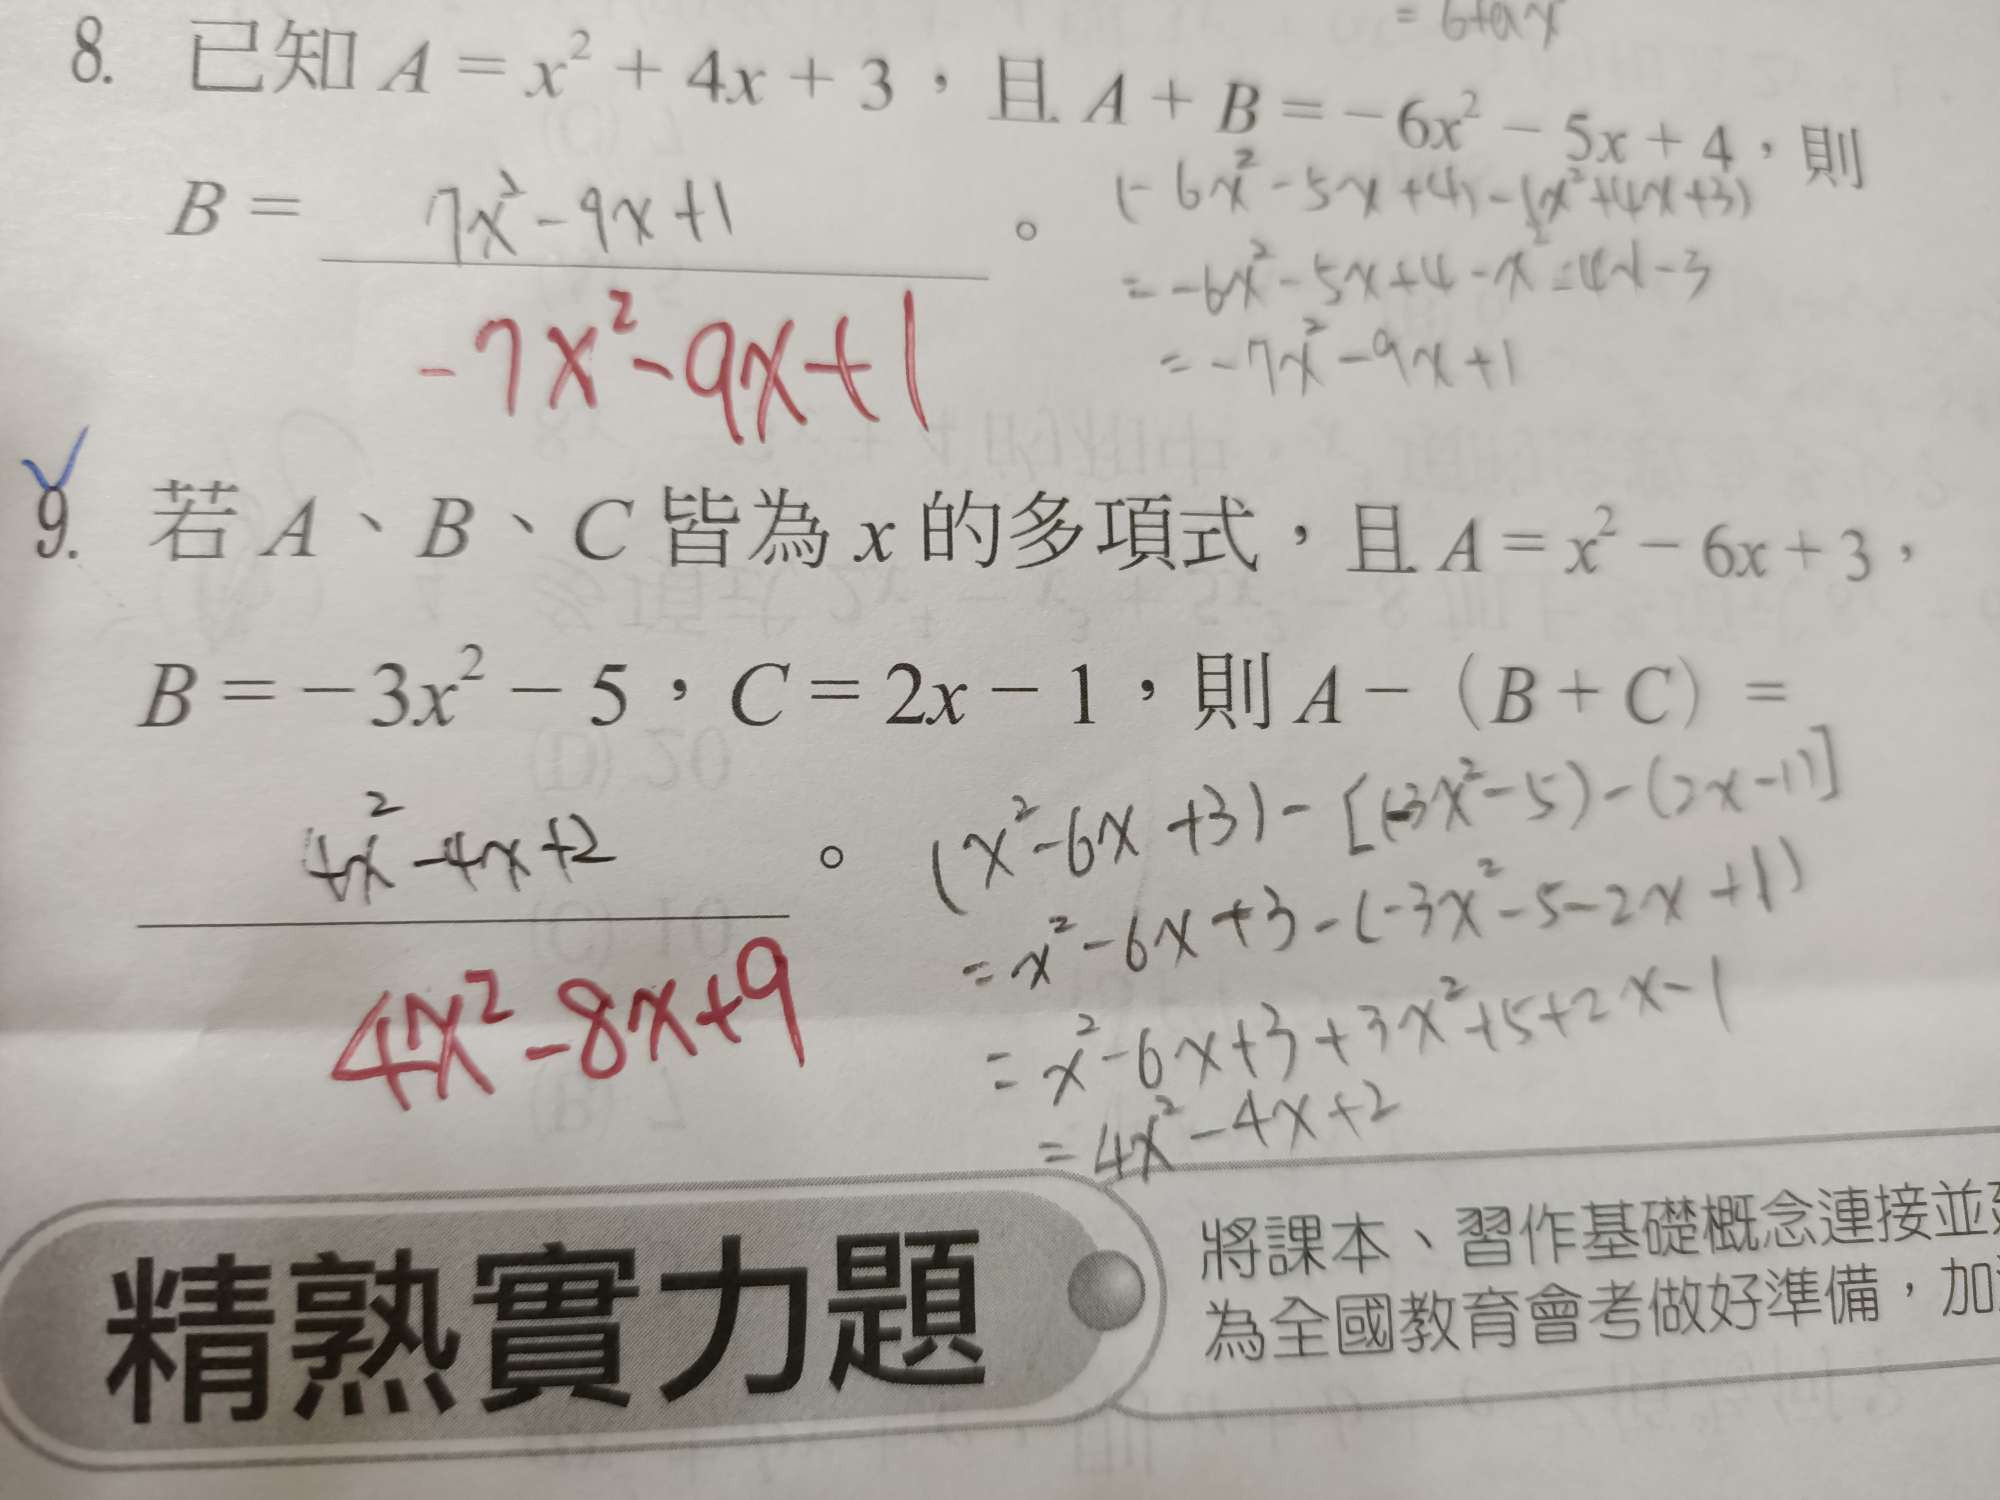 = 6+ax
8. 已知 A = x² + 4x + 3，且 A + B = -6x² - 5x + 4，則
B = 7x² - 9x + 1 。
-7x² - 9x + 1
(-6x² - 5x + 4) - (x² + 4x + 3)
= -6x² - 5x + 4 - x² - 4x - 3
= -7x² - 9x + 1
9. 若 A、B、C 皆為 x 的多項式，且 A = x² - 6x + 3，
B = -3x² - 5，C = 2x - 1，則 A - (B + C) =
4x² - 4x + 2 。
4x² - 8x + 9
(x² - 6x + 3) - [(-3x² - 5) - (2x - 1)]
= x² - 6x + 3 - (-3x² - 5 - 2x + 1)
= x² - 6x + 3 + 3x² + 5 + 2x - 1
= 4x² - 4x + 2
精熟實力題
將課本、習作基礎概念連接並
為全國教育會考做好準備，加